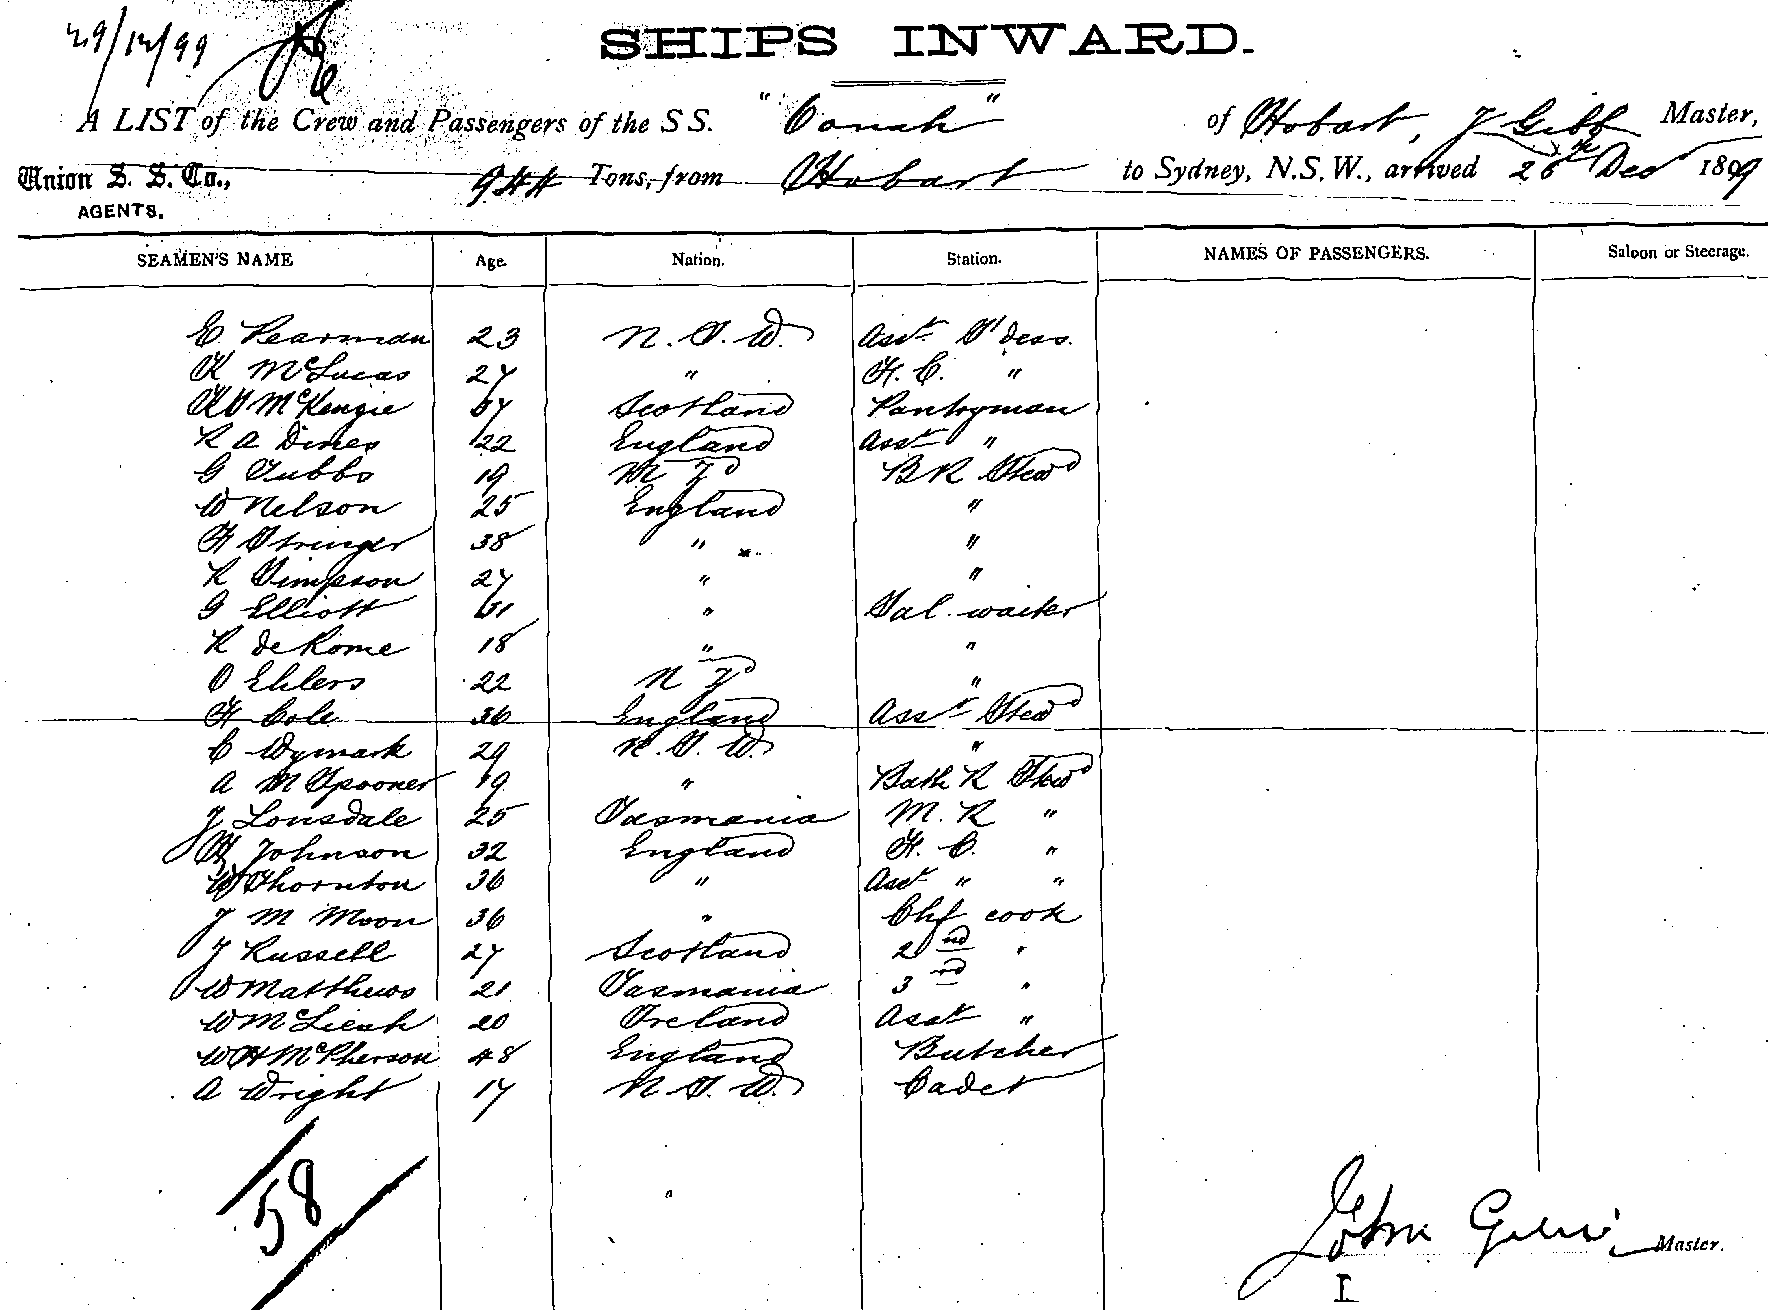 29/12/99
SHIPS INWARD.
A LIST of the Crew and Passengers of the SS. "Oonah" of Hobart, J Gibb Master,
Union S. S. Co., 944 Tons, from Hobart to Sydney, N.S.W., arrived 26th Dec 1899
AGENTS.
SEAMEN'S NAME Age. Nation. Station. NAMES OF PASSENGERS. Saloon or Steerage.
E Pearman 23 N.S.W. Asst S'dess.
K McLucas 27 " F.C. "
McKenzie 37 Scotland Pantryman
R A Dines 22 England Asst "
G Tubbs 19 N Zd BR Stewd
W Nelson 25 England "
H Stringer 38 " "
R Simpson 27 " "
G Elliott 31 " Sal. waiter
R de Rome 18 " "
O Ehlers 22 N Zd "
H Cole 36 England Asst Stewd
C Wymark 29 N.S.W. "
A M Spooner 19 " Bath R Stewd
J Lonsdale 25 Tasmania M.R "
H Johnson 32 England F.C. "
W Thornton 36 " Asst " "
J M Moon 36 " Chf cook
J Russell 27 Scotland 2nd "
W Matthews 21 Tasmania 3rd "
W McLiesh 20 Ireland Asst "
W H McPherson 48 England Butcher
A Wright 17 N.S.W. Cadet
58
John Gibb Master.
I